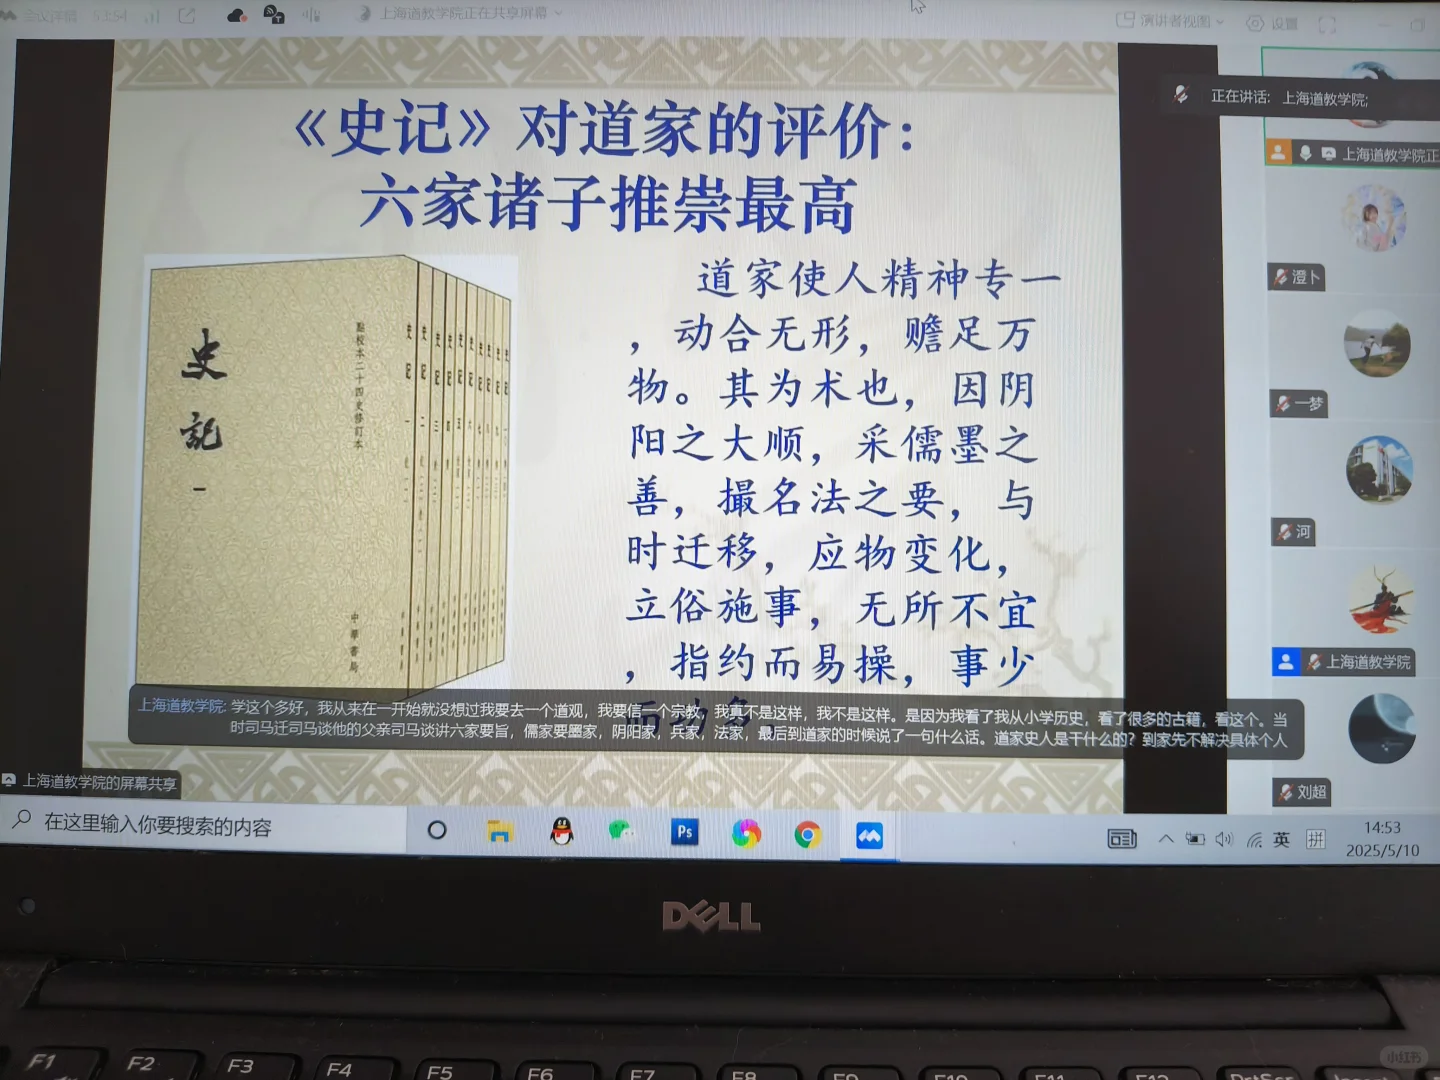 会议详情 53:54
上海道教学院正在共享屏幕
演讲者视图
设置
正在讲话: 上海道教学院;
上海道教学院正
《史记》对道家的评价：
六家诸子推崇最高
道家使人精神专一
，动合无形，赡足万
物。其为术也，因阴
阳之大顺，采儒墨之
善，撮名法之要，与
时迁移，应物变化，
立俗施事，无所不宜
，指约而易操，事少
而功多。
史記
一
點校本二十四史修订本
中華書局
史記 一
史記 二
史記 三
史記 四
史記 五
史記 六
史記 七
史記 八
史記 九
史記 一〇
澄卜
一梦
河
上海道教学院
刘超
上海道教学院: 学这个多好，我从来在一开始就没想过我要去一个道观，我要信一个宗教，我真不是这样，我不是这样。是因为我看了我从小学历史，看了很多的古籍，看这个。当
时司马迁司马谈他的父亲司马谈讲六家要旨，儒家要墨家，阴阳家，兵家，法家，最后到道家的时候说了一句什么话。道家史人是干什么的？到家先不解决具体个人
上海道教学院的屏幕共享
在这里输入你要搜索的内容
Ps
英
拼
14:53
2025/5/10
DELL
F1 F2 F3 F4 F5 F6 F7 F8 F9 F10 F11 F12 PrtScr Insert
小红书